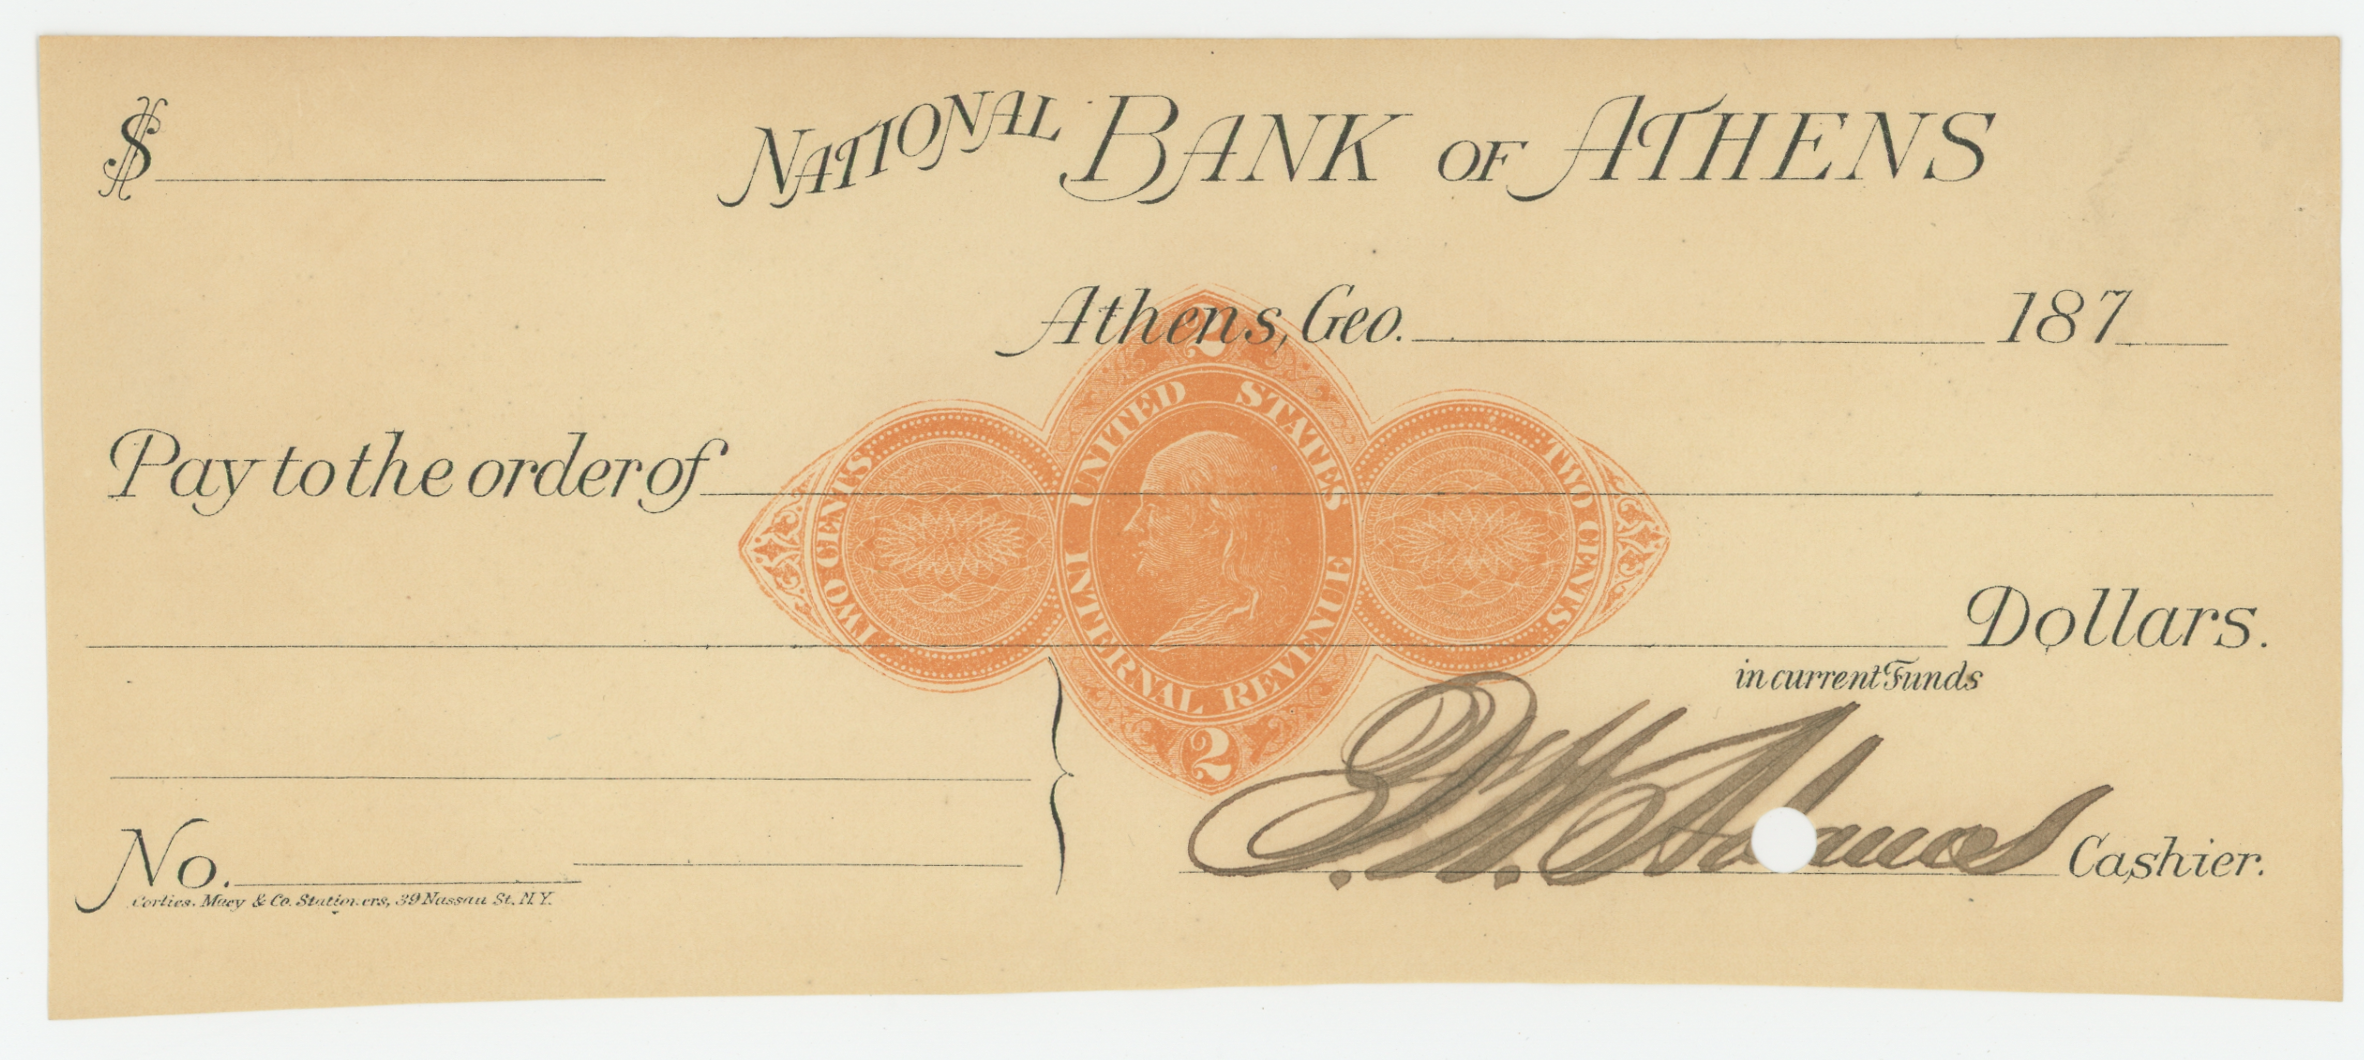 $
NATIONAL BANK OF ATHENS
Athens, Geo. 187
Pay to the order of
2
UNITED STATES
TWO CENTS
TWO CENTS
INTERNAL REVENUE
2
Dollars.
in current Funds
Adams Cashier.
No.
Corlies, Macy & Co. Stationers, 39 Nassau St. N.Y.